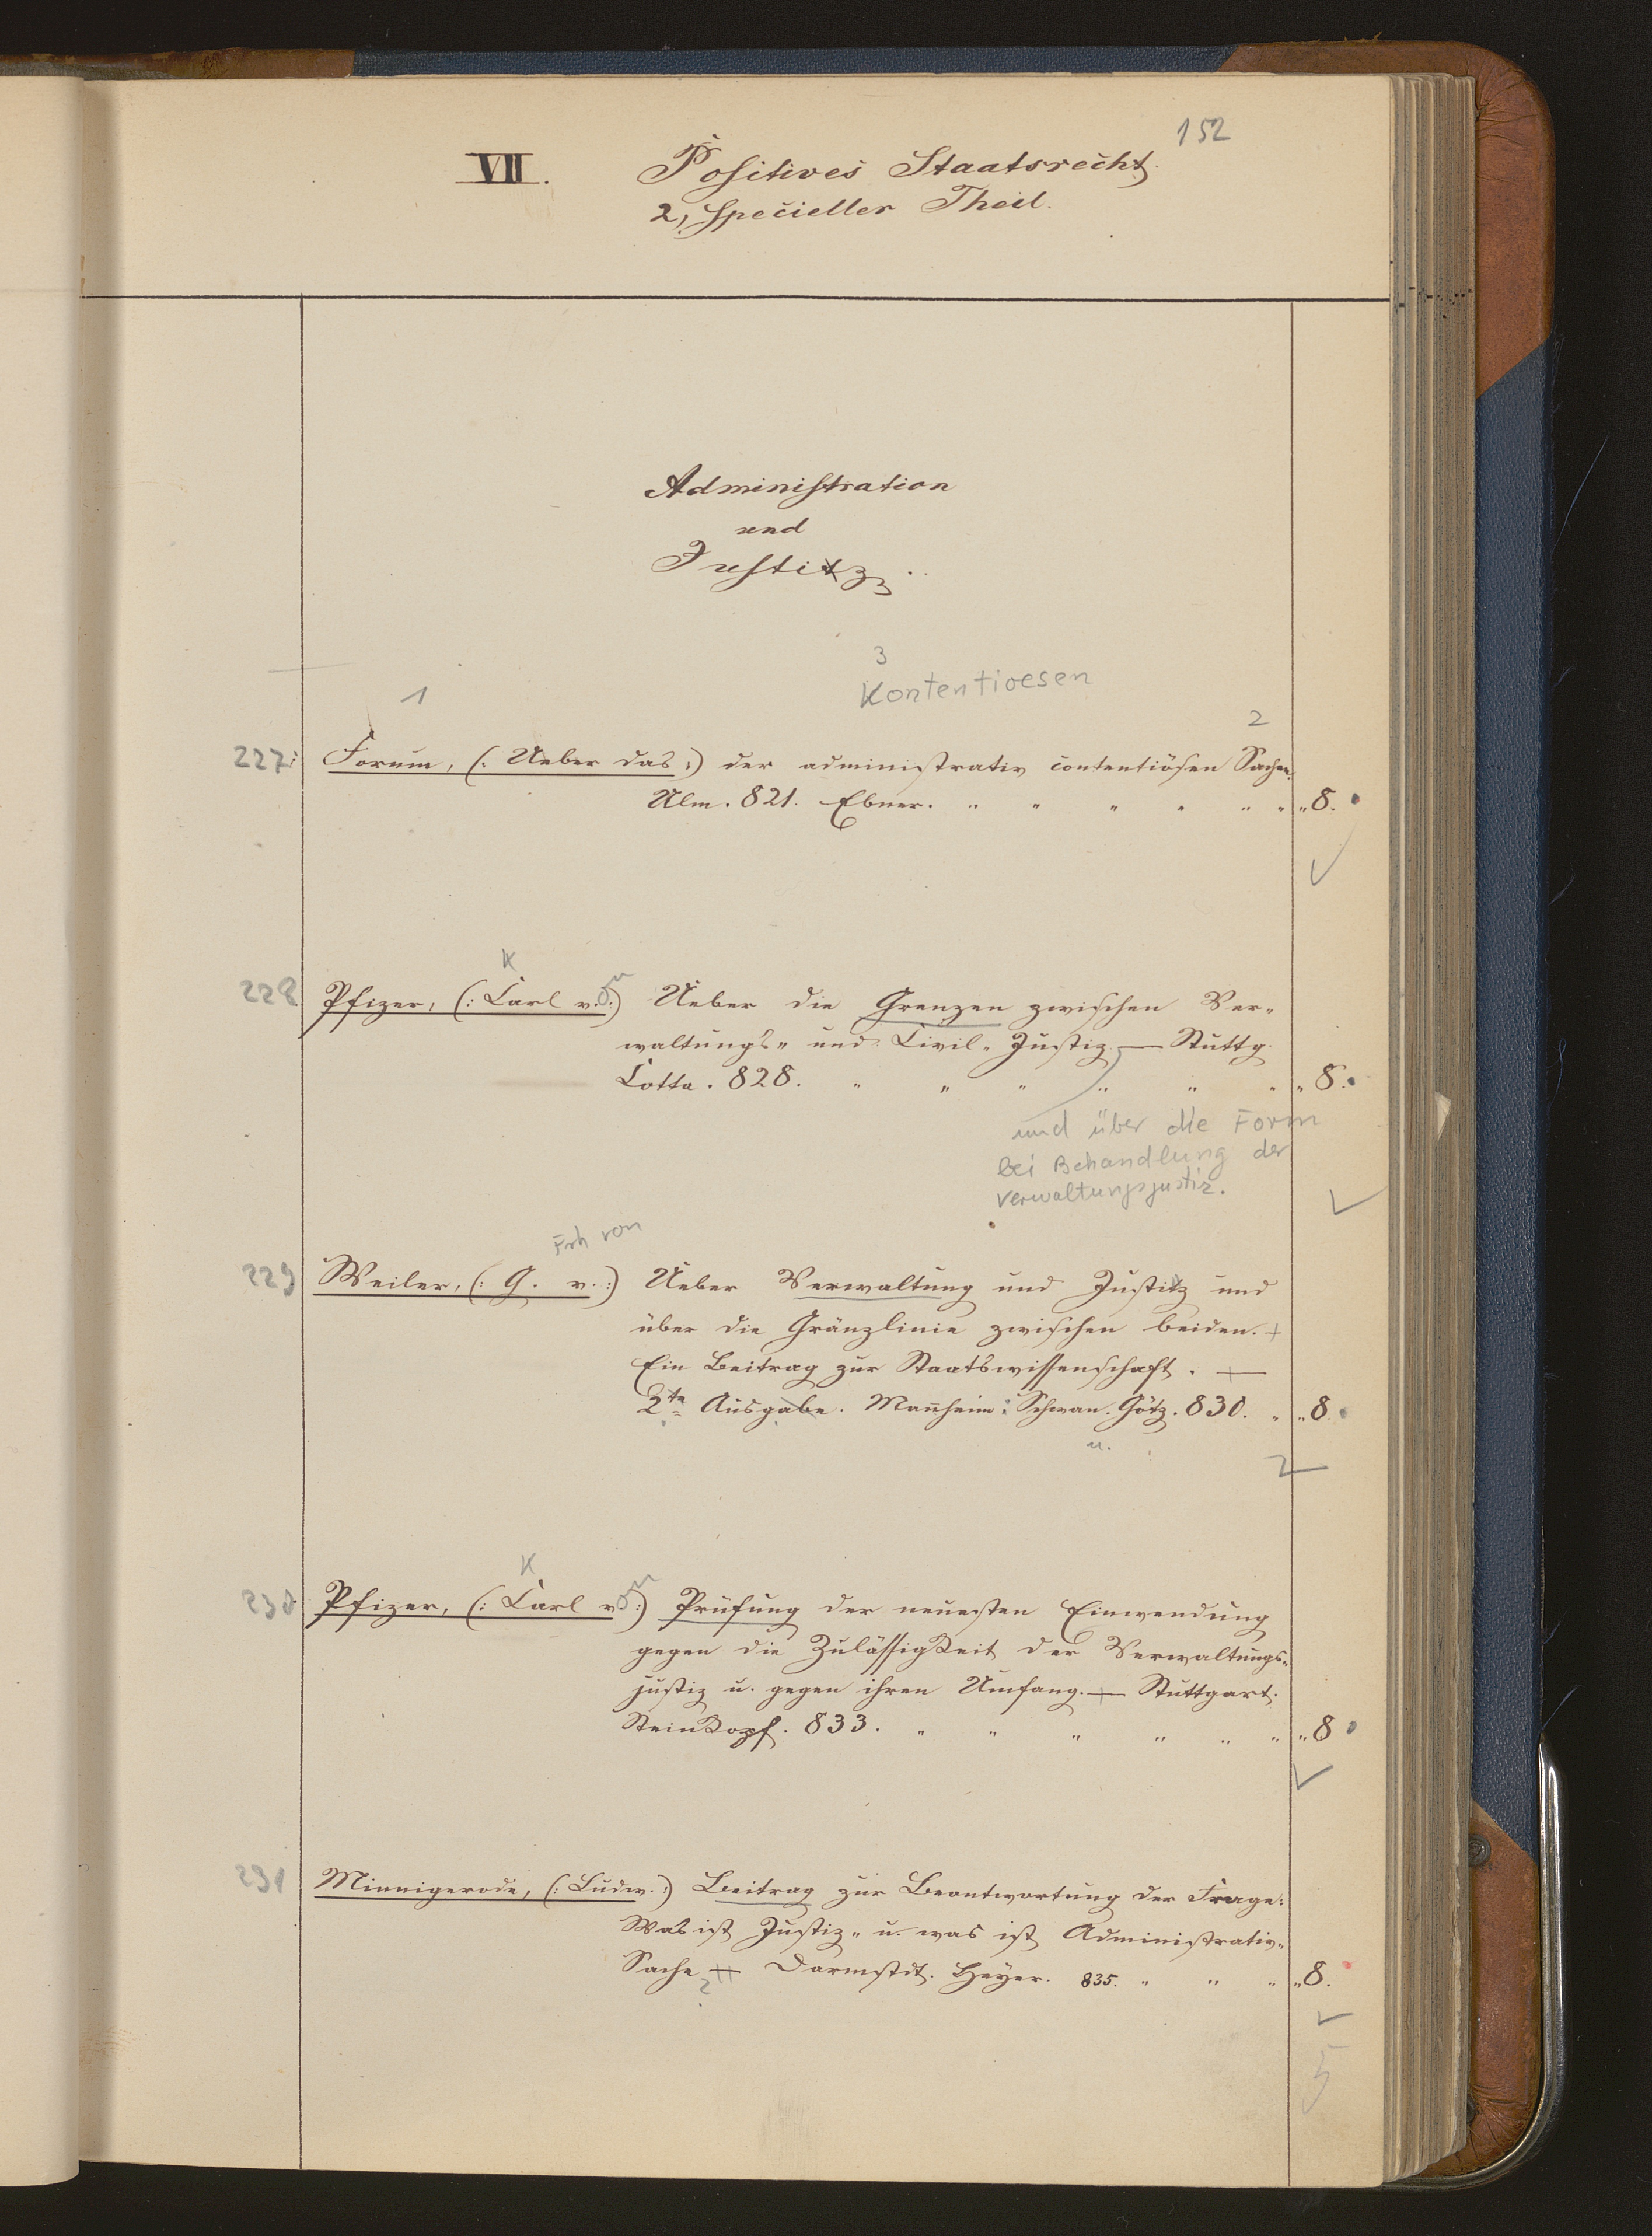 152
VII. Positives Staatsrecht.
2, Specieller Theil.
Administration
und
Justitz.
3
Kontentioesen
1
2
227 Forum, (: Ueber das :) der administrativ contentiösen Sachen.
Ulm. 821. Ebner. " " " " " " " 8.
K
228 Pfizer, (: Carl v. :) Ueber die Grenzen zwischen Ver-
waltungs- und Civil-Justiz. — Stuttg.
Cotta. 828. " " " " " " " 8.
und über die Form
bei Behandlung der
Verwaltungsjustiz.
Frh von
229 Weiler, (: G. v. :) Ueber Verwaltung und Justitz und
über die Gränzlinie zwischen beiden. +
Ein Beitrag zur Staatswissenschaft. —
2te Ausgabe. Man̄heim: Schwan. Götz. 830. " " 8.
u.
2
K
230 Pfizer, (: Carl v. :) Prüfung der neuesten Einwendung
gegen die Zulässigkeit der Verwaltungs-
justiz u. gegen ihren Umfang. — Stuttgart.
Steinkopf. 833. " " " " " " " 8
231 Minnigerode, (: Ludw. :) Beitrag zur Beantwortung der Frage:
Was ist Justiz- u. was ist Administrativ-
Sache — Darmstdt. Heyer. 835. " " " " 8.
?
5